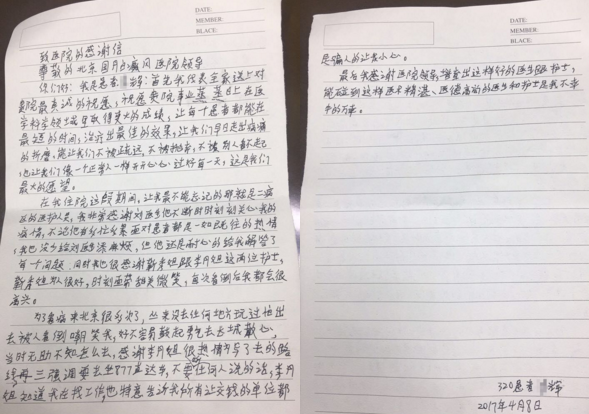 DATE:
MEMBER:
BLACE:
致医院的感谢信
尊敬的北京国丹白癜风医院领导
你们好:我是患者 辉:首先我代表全家送上对
贵院最真诚的祝愿,祝愿贵院事业蒸蒸日上在医
学科学领域里取得更大的成绩,让每个患者都能在
最短的时间,治疗出最佳的效果,让我们早日走出病痛
的折磨,能让我们不被歧视,不被抛弃,不被别人看不起
,也让我们像一个正常人一样开开心心过好每一天,这是我们
最大的愿望。
在我住院这段期间,让我最不能忘记的那就是二病
区的医护人员,我非常感谢刘医生他不断时时刻刻关心我的
病情,不论他有多忙多累面对患者都是一如既往的热情
,我也没少给刘医生添麻烦,但他还是耐心的给我解答了
每一个问题。同时我也很感谢靳素姐跟李月姐这两位护士,
靳素姐人很好,时刻面带甜美微笑,每次看到后我都会很
高兴。
因看病来北京很多次了,从来没去任何地方玩过怕出
去被人看到嘲笑我,好不容易鼓起勇气去长城散心,
当时无助不知怎么去,感谢李月姐很热情书写了去的路
线再三强调要去坐877直达车,不要听任何人说的话,李月
姐知道我在找工作,她特意告诉我所有让交钱的单位都
DATE:
MEMBER:
BLACE:
是骗人的让我小心。
最后我感谢医院领导,培养出这样好的医生跟护士,
能碰到这样医术精湛、医德高尚的医生和护士是我不幸
中的万幸。
320患者 辉
2017年4月8日